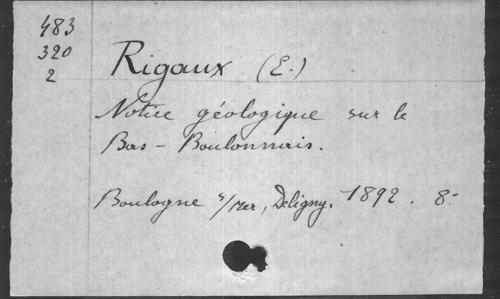 483
320
2
Rigaux (E.)
Notice géologique sur le
Bas-Boulonnais.
Boulogne s/Mer, Deligny. 1892. 8-